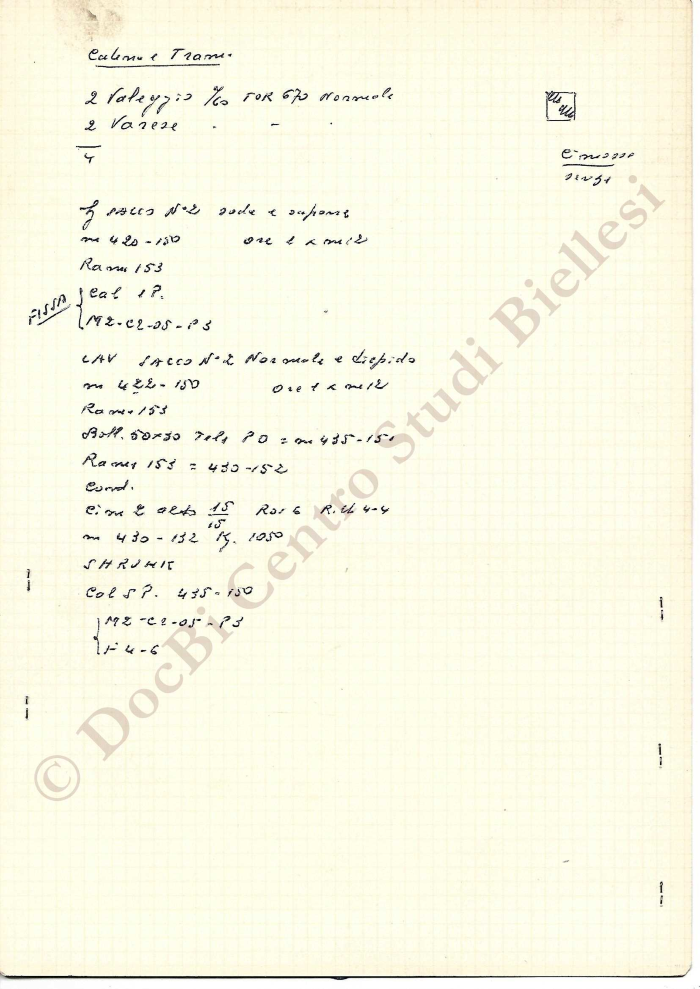 Catena e Trama
2 Valeggio 2/60 TOR 670 Normale
2 Varese " - "
4
Cimossa
SACCO N°2 soda e sapone
m 420-150 ore 1 x m12
Rama 153
FISSA
Cal 1P.
M2-C2-05-P3
LAV SACCO N°2 Normale e tiepido
m 422-150 ore 1 x m12
Rama 153
Bott. 50x30 Tela PD = m 435-151
Rama 153 = 430-152
Cond.
Cim 2 alto 15/15 Ras 6 4-4
m 430-132 Kg. 1050
SHRUNK
Cal SP. 435-150
M2-C2-05-P3
F 4-6
© DocBi Centro Studi Biellesi